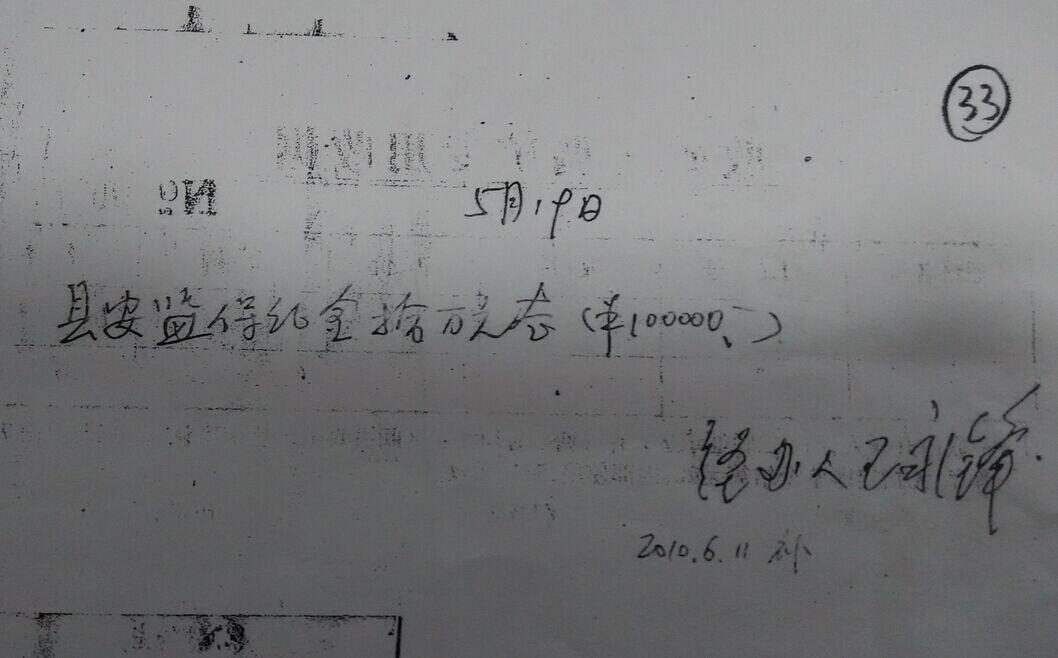 33
№
5月19日
县安监保纪金拾万元态(¥100000、一)
经办人王永锋
2010.6.11 补